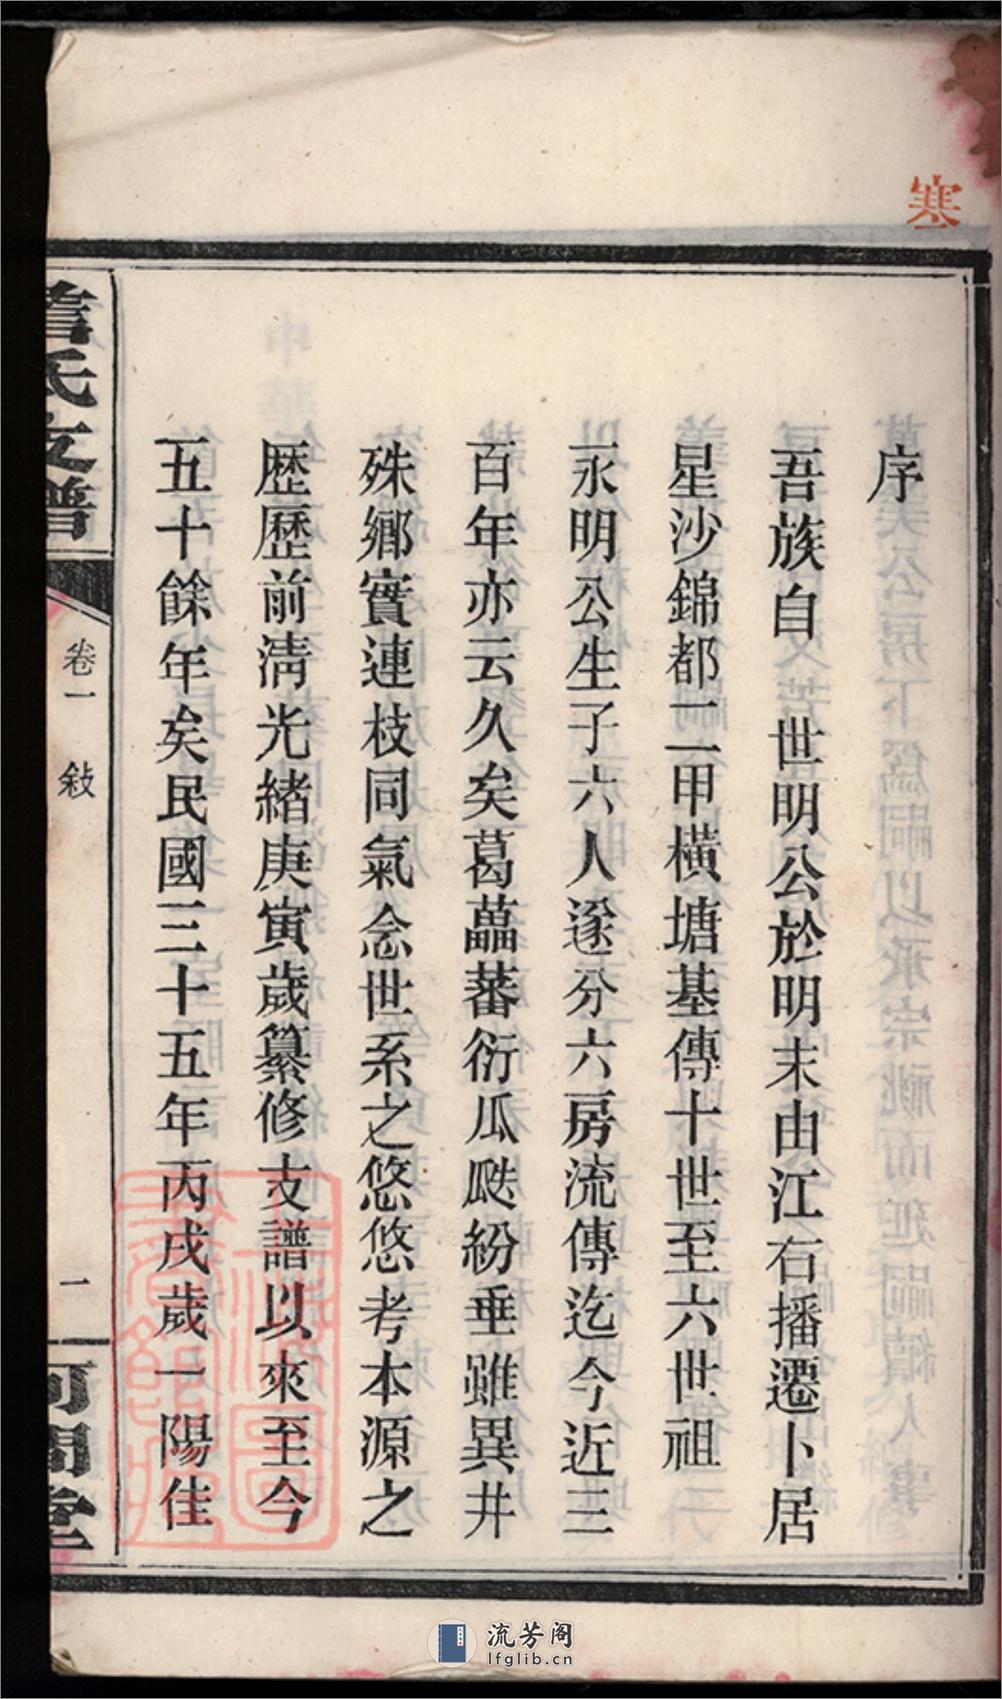 寒
序
吾族自　世明公於明末由江右播遷卜居
星沙錦都二甲橫塘基傳十世至六世祖
永明公生子六人遂分六房流傳迄今近三
百年亦云久矣葛藟蕃衍瓜瓞紛垂雖異井
殊鄉實連枝同氣念世系之悠悠考本源之
歷歷前清光緒庚寅歲纂修支譜以來至今
五十餘年矣民國三十五年丙戌歲一陽佳
氏支譜
卷一　敍
二
河間堂
流芳阁
lfglib.cn